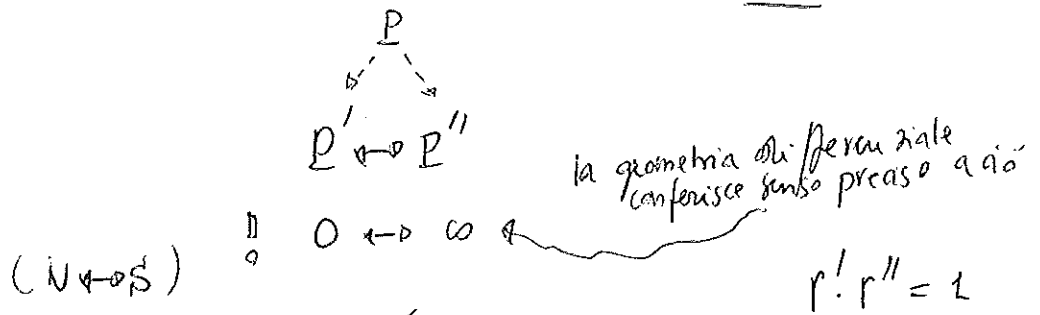 P
P' ↔ P''
la geometria differenziale
conferisce senso preciso a ciò
!! 0 ↔ ∞
(N ↔ S)
r' · r'' = 1